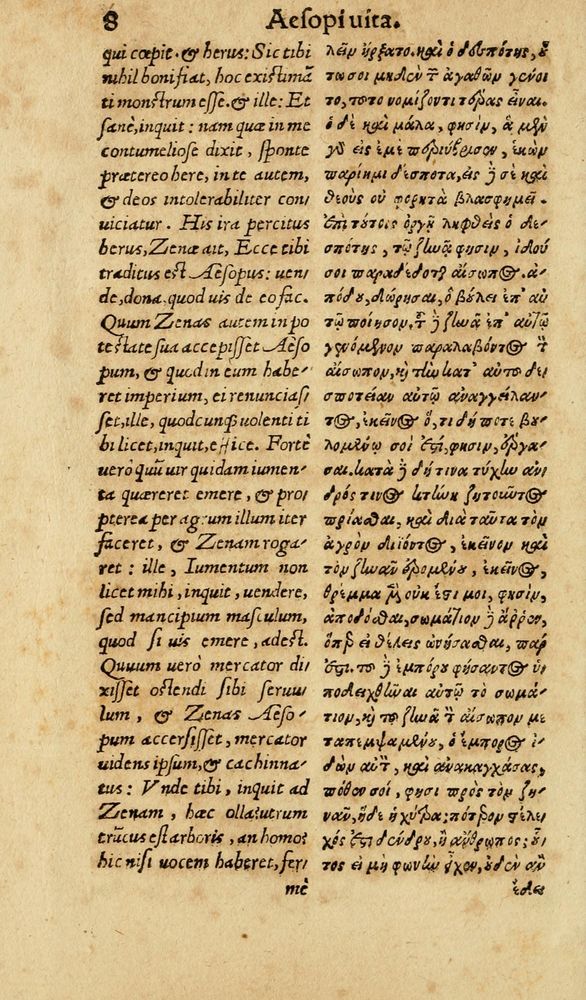 8 Aesopi uita.
qui cœpit. & herus: Sic tibi
nihil boni fiat, hoc existimā
ti monstrum esse. & ille: Et
sanè, inquit: nam quæ in me
contumeliose dixit, sponte
prætereo here, in te autem,
& deos intolerabiliter con/
uiciatur. His ira percitus
herus, Zenæ ait, Ecce tibi
traditus est Aesopus: uen/
de, dona, quod uis de eo fac.
Quum Zenas autem in po
testate sua accepisset Aeso
pum, & quod in eum habe/
ret imperium, ei renunciasi
set, ille, quodcunq; uolenti ti
bi licet, inquit, effice. Fortè
uero quū uir quidam iumen/
ta quæreret emere, & pro/
pterea per agrum illum iter
faceret, & Zenam roga/
ret: ille, Iumentum non
licet mihi, inquit, uendere,
sed mancipium masculum,
quod si uis emere, adest.
Quum uerò mercator di/
xisset ostendi sibi seruu/
lum, & Zenas Aeso/
pum accersisset, mercator
uidens ipsum, & cachinna/
tus: Vnde tibi, inquit ad
Zenam, hæc olla? utrum
trūcus est arboris, an homo?
hic nisi uocem haberet, fer/
mè
λεῖν ἤρξατο. καὶ ὁ δεσπότης, οὕ
τω σοι μηδὲν τῶν ἀγαθῶν γένοι
το, τοῦτο νομίζοντι τέρας εἶναι.
ὁ δὲ καὶ μάλα, φησὶν, ἃ μὲν
γὸ εἰς ἐμὲ περιύβρισεν, ἑκὼν
παρίημι δέσποτα, εἰς ἢ σὲ καὶ
θεοὺς οὐ φορητὰ βλασφημεῖ.
ἐπὶ τούτοις ὀργῇ ληφθεὶς ὁ δε-
σπότης, τῷ ζηνᾷ φησιν, ἰδού
σοι παραδέδοται αἴσωπος. ἀ-
πόδου, δώρησαι, ὃ βούλει ἐπ' αὐ
τῷ ποίησον. τοῦ δὲ ζηνᾶ ἐπ' αὐτῷ
γενόμενον παραλαβόντος τὸν
αἴσωπον, καὶ τὴν κατ' αὐτοῦ δε
σποτείαν αὐτῷ ἀναγγείλαν-
τος, ἐκεῖνος ὅ, τι δήποτε βου
λομένῳ σοί ἐστι, φησὶν, ἔργα-
σαι. κατὰ δὲ δή τινα τύχην ἀν
δρός τινος κτήνη ζητοῦντος
πρίασθαι, καὶ διὰ ταῦτα τὸν
ἀγρὸν διϊόντος, ἐκεῖνον καὶ
τὸν ζηνᾶν ἐρομένου, ἐκεῖνος,
θρέμμα μὲν οὐκ ἔστι μοι, φησὶν,
ἀποδόσθαι, σωμάτιον δὲ ἄρρεν,
ὅπερ εἰ θέλεις ὠνήσασθαι, πάρ
ἐστι. τοῦ δὲ ἐμπόρου φήσαντος ὑ
ποδειχθῆναι αὐτῷ τὸ σωμά-
τιον, καὶ τοῦ ζηνᾶ τὸν αἴσωπον με
ταπεμψαμένου, ὁ ἔμπορος ἰ-
δὼν αὐτὸν, καὶ ἀνακαγχάσας,
πόθεν σοι, φησὶ πρὸς τὸν ζη-
νᾶν, ἥδε ἡ χύτρα; πότερον στέλε
χός ἐστι δένδρου, ἢ ἄνθρωπος; οὗ
τος εἰ μὴ φωνὴν εἶχεν, οὐδὲν ἂν
ἔδει